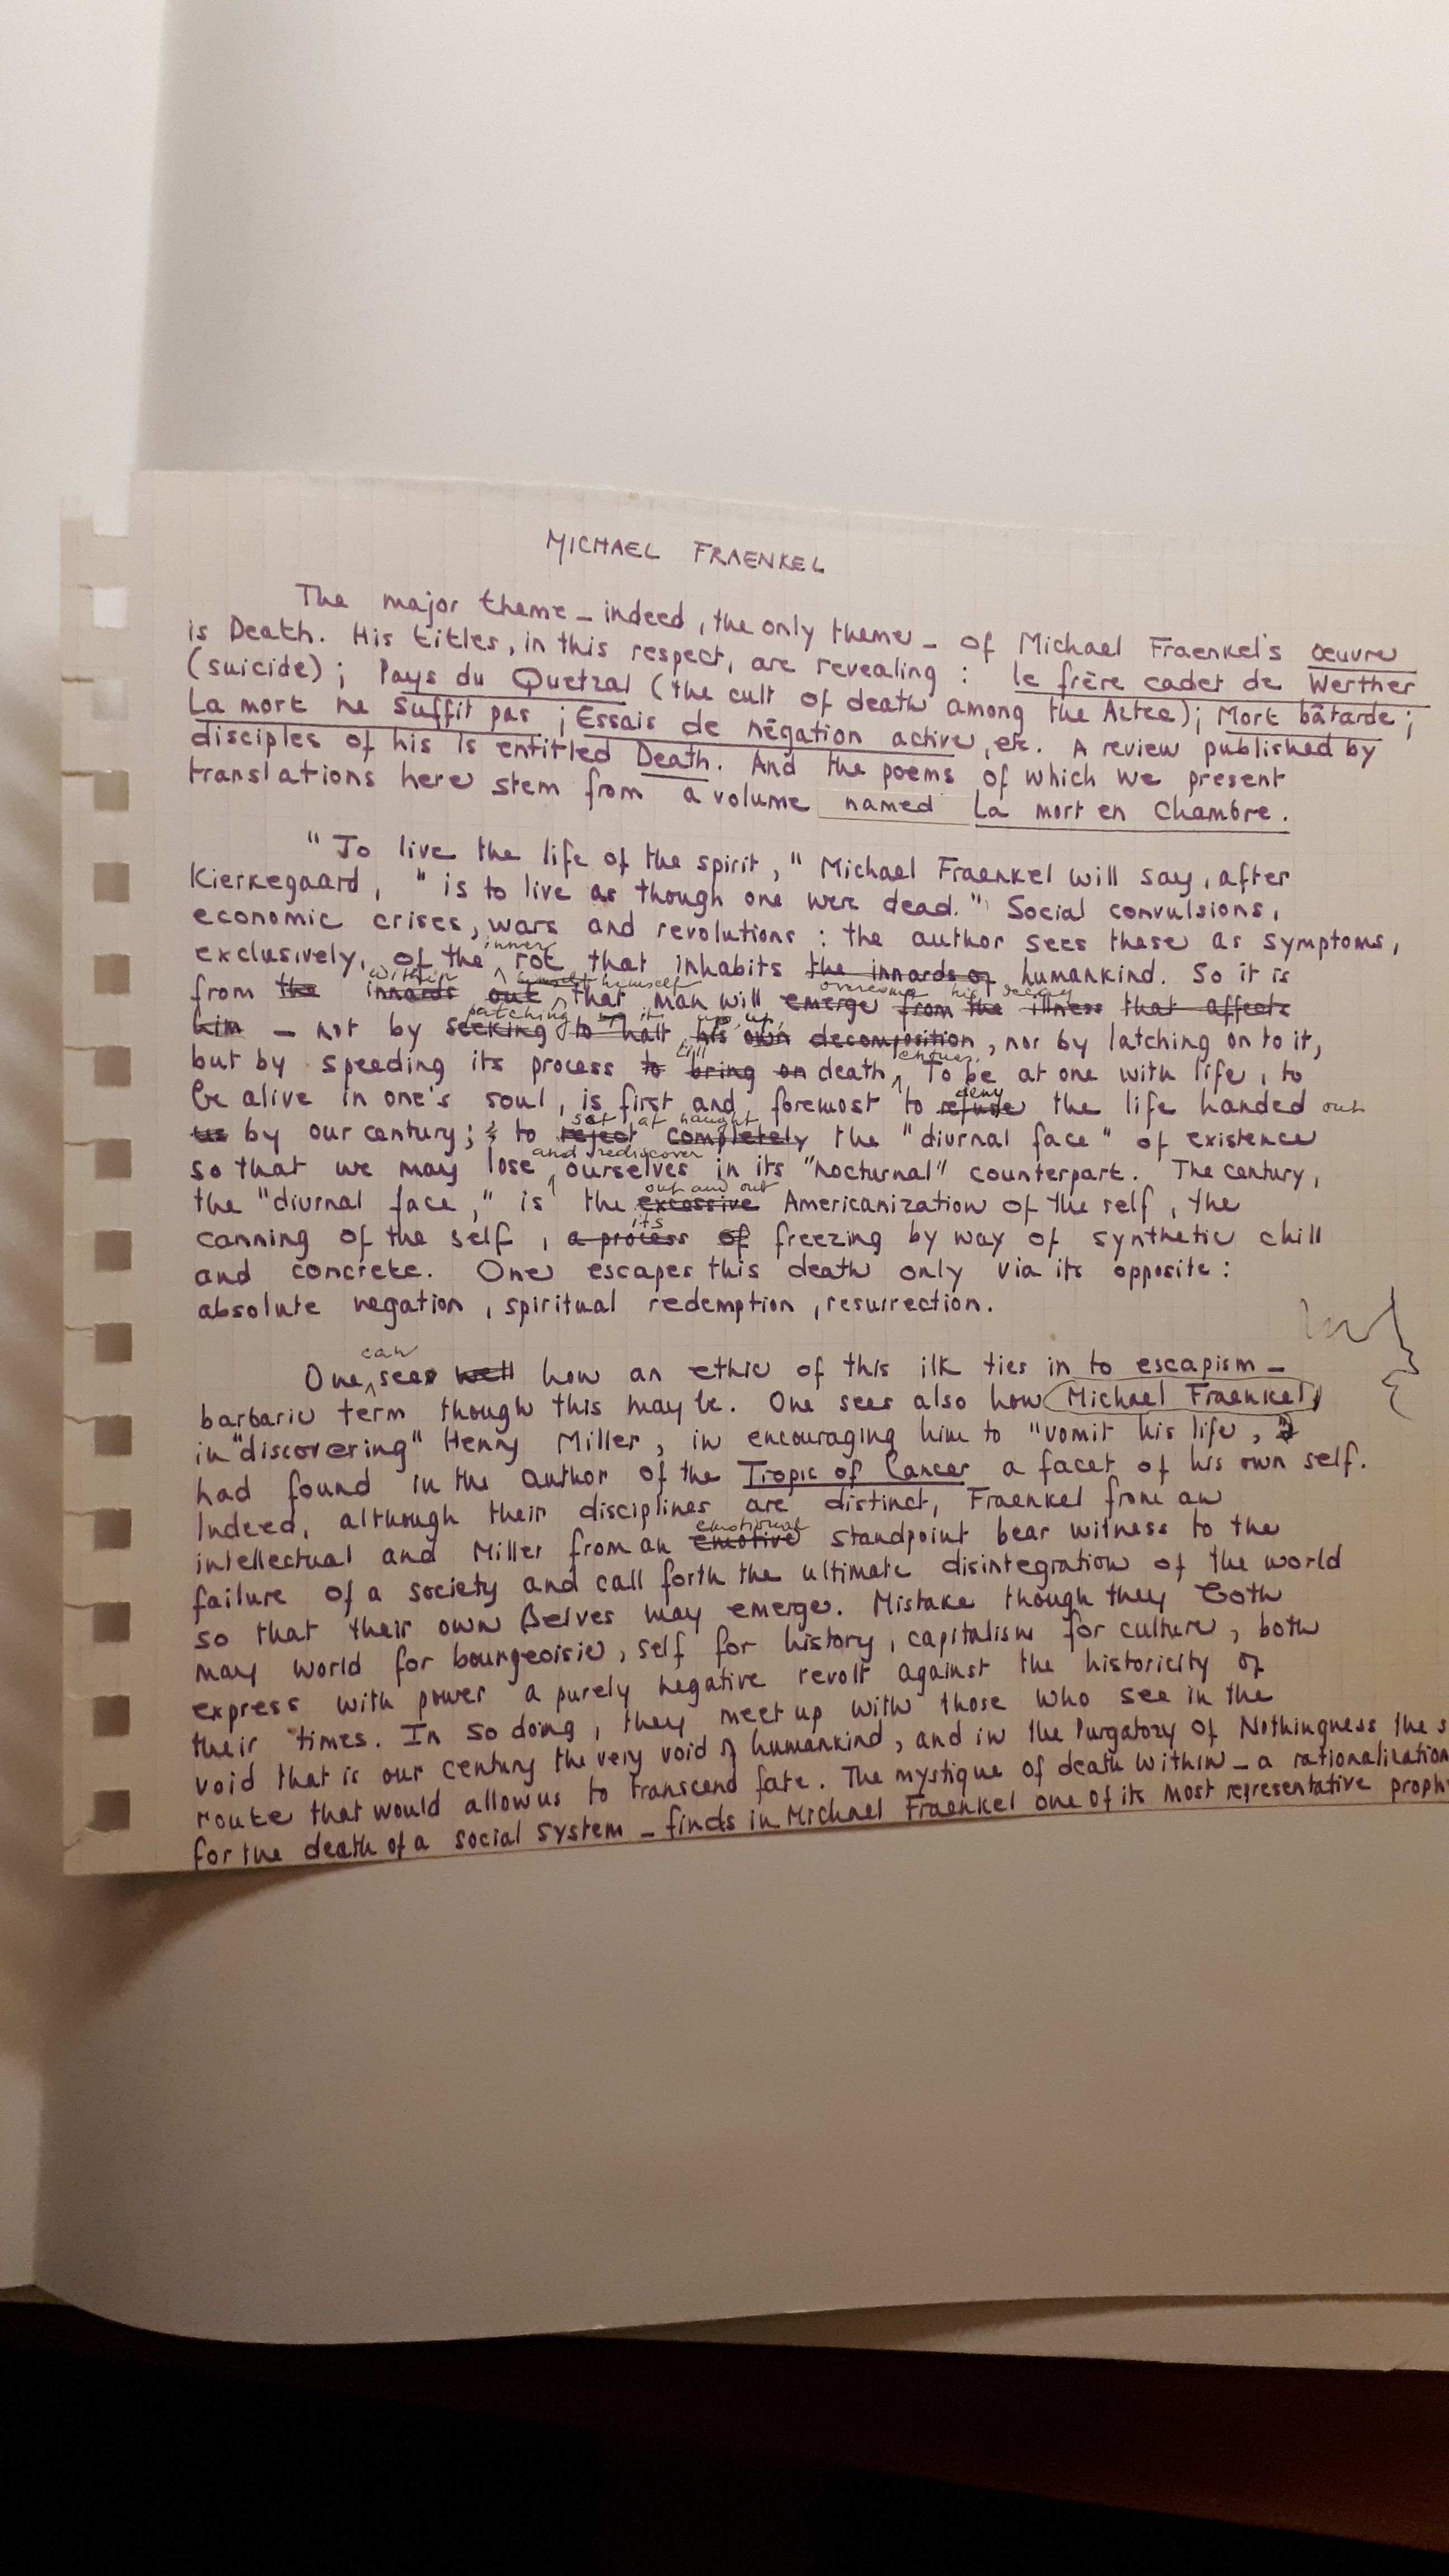 MICHAEL FRAENKEL
The major theme – indeed, the only theme – of Michael Fraenkel's œuvre
is Death. His titles, in this respect, are revealing : le frère cadet de Werther
(suicide) ; Pays du Quetzal (the cult of death among the Aztec) ; Mort bâtarde ;
La mort ne suffit pas ; Essais de négation active, etc. A review published by
disciples of his is entitled Death. And the poems of which we present
translations here stem from a volume named La mort en chambre.
"To live the life of the spirit," Michael Fraenkel will say, after
Kierkegaard, "is to live as though one were dead." Social convulsions,
economic crises, wars and revolutions : the author sees these as symptoms,
inner
exclusively, of the rot that inhabits the innards of humankind. So it is
within himself himself overcome his decay
from the innards out that man will emerge from the illness that affects
patching it up
him – not by seeking to halt his own decomposition, nor by latching on to it,
till ensues.
but by speeding its process to bring on death. To be at one with life, to
deny
be alive in one's soul, is first and foremost to refuse the life handed out
set at naught
us by our century ; & to reject completely the "diurnal face" of existence
and rediscover
so that we may lose ourselves in its "nocturnal" counterpart. The century,
out and out
the "diurnal face," is the excessive Americanization of the self, the
its
canning of the self, a process of freezing by way of synthetic chill
and concrete. One escapes this death only via its opposite :
absolute negation, spiritual redemption, resurrection.
can
One sees well how an ethic of this ilk ties in to escapism –
barbaric term though this may be. One sees also how Michael Fraenkel,
in "discovering" Henry Miller, in encouraging him to "vomit his life,"
had found in the author of the Tropic of Cancer a facet of his own self.
Indeed, although their disciplines are distinct, Fraenkel from an
emotional
intellectual and Miller from an emotive standpoint bear witness to the
failure of a society and call forth the ultimate disintegration of the world
so that their own selves may emerge. Mistake though they both
may world for bourgeoisie, self for history, capitalism for culture, both
express with power a purely negative revolt against the historicity of
their times. In so doing, they meet up with those who see in the
void that is our century the very void of humankind, and in the Purgatory of Nothingness the s
route that would allow us to transcend fate. The mystique of death within – a rationalization
for the death of a social system – finds in Michael Fraenkel one of its most representative proph